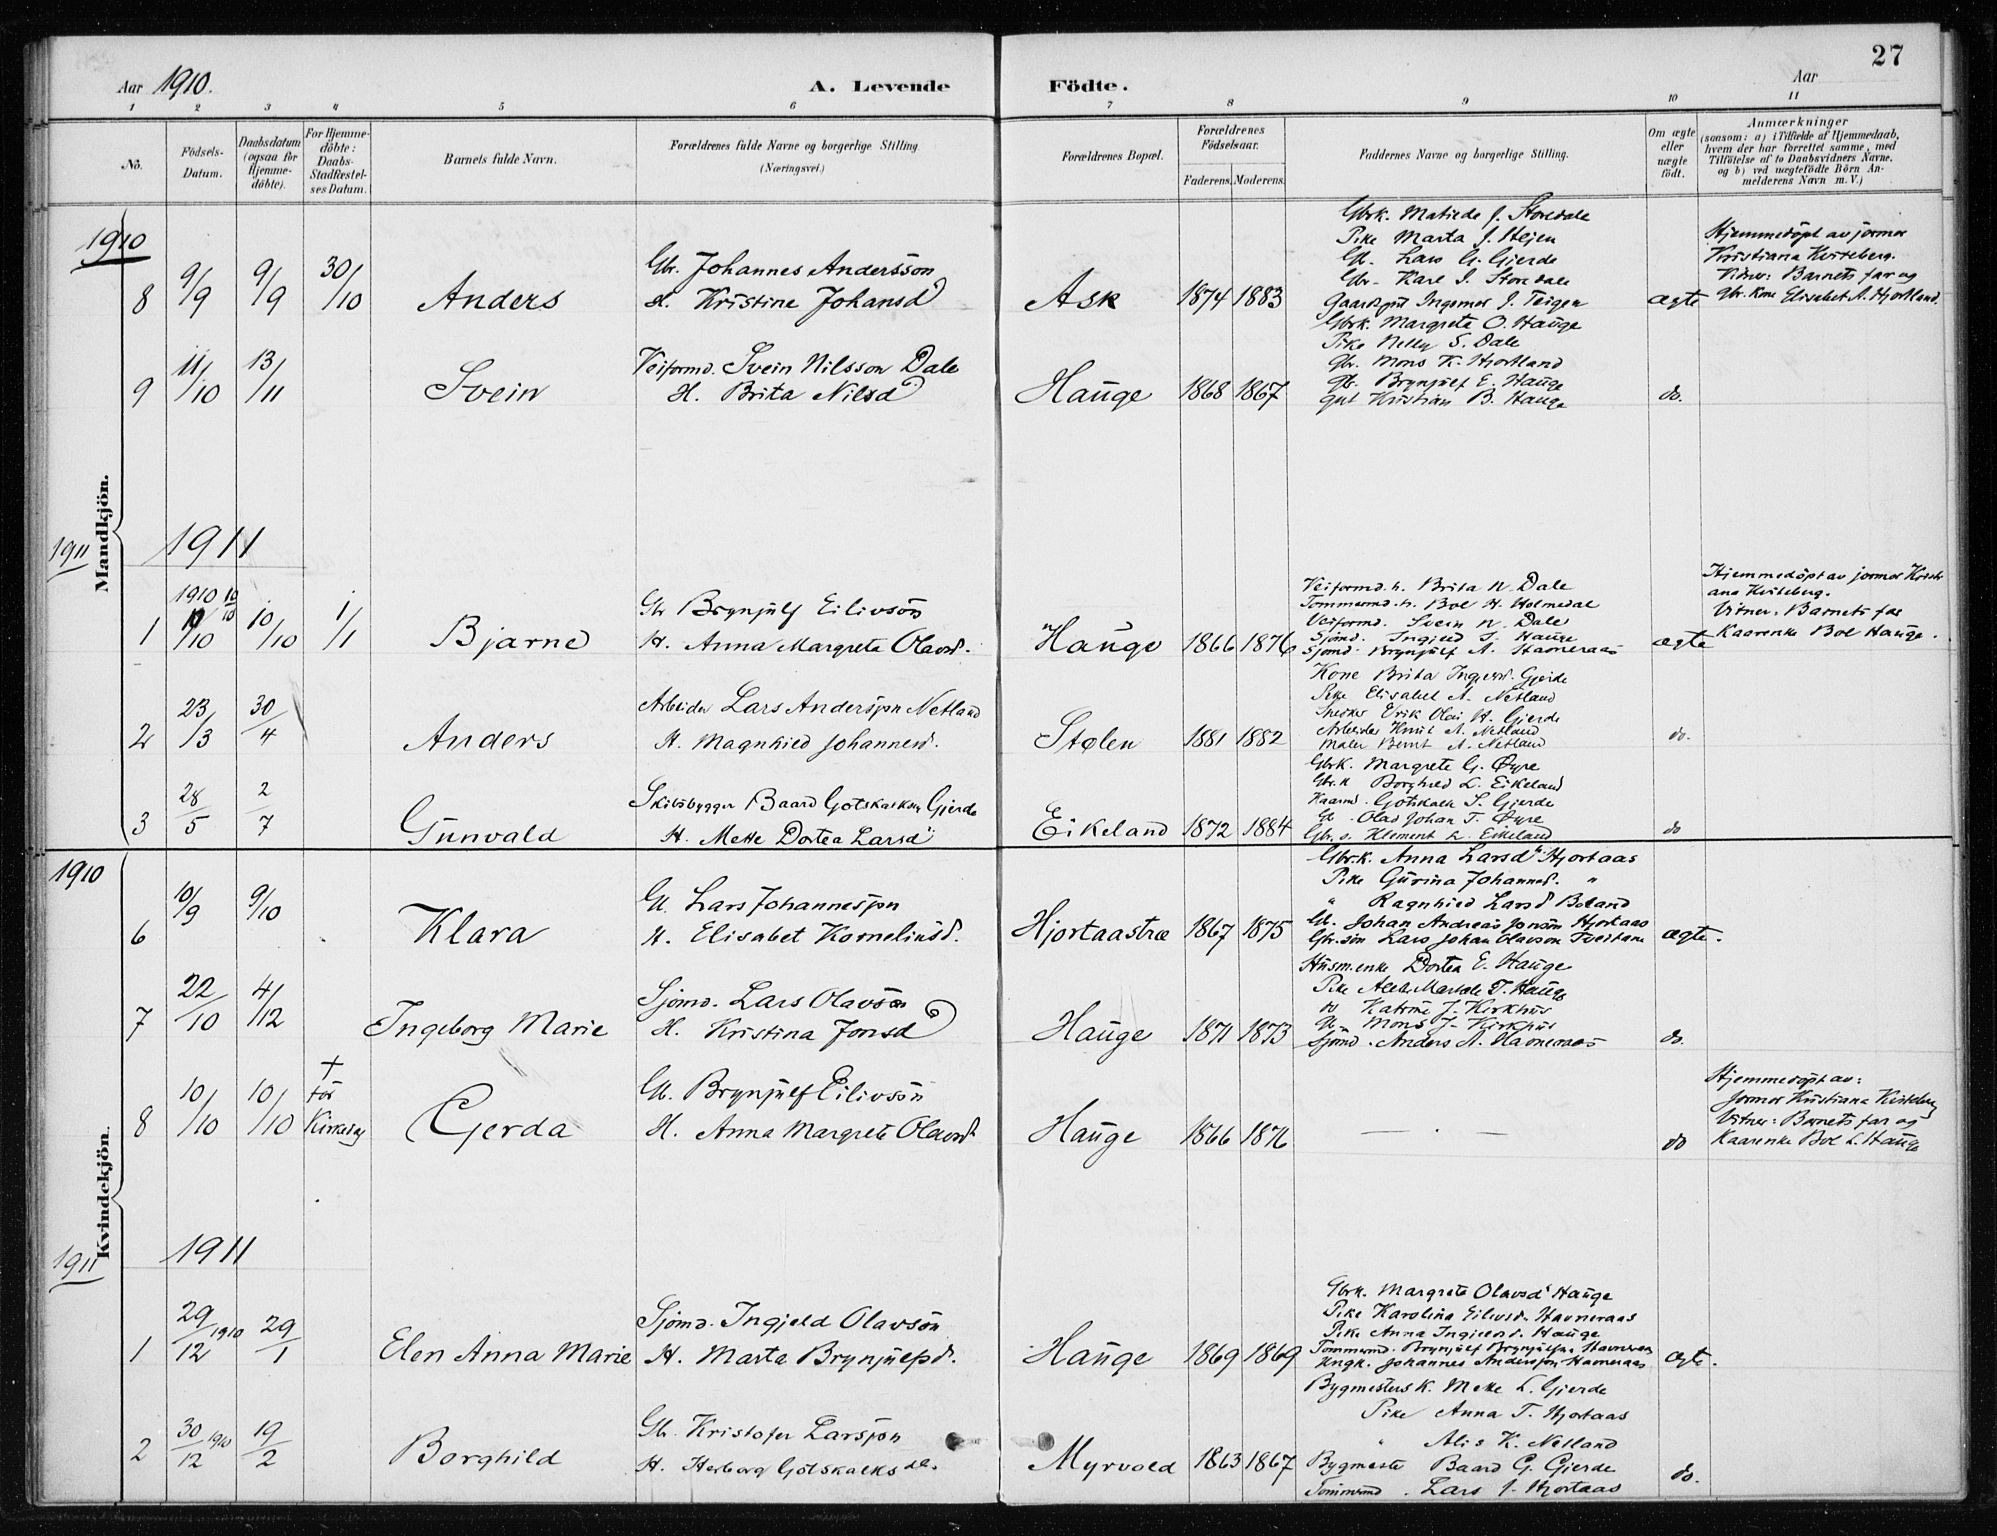 27
Aar 1910.
A. Levende Födte.
Aar
1 2 3 4 5 6 7 8 9 10 11
Nö.
Födsels-Datum.
Daabsdatum (ogsaa for Hjemme-döbte).
For Hjemme-döbte: Daabs-Stadfæstel-ses Datum.
Barnets fulde Navn.
Forældrenes fulde Navne og borgerlige Stilling (Næringsvei.)
Forældrenes Bopæl.
Forældrenes Födselsaar.
Faderens. Moderens.
Faddernes Navne og borgerlige Stilling.
Om ægte eller uægte födt.
Anmærkninger
(saasom: a) i Tilfælde af Hjemmedaab, hvem der har forrettet samme, med Tilföielse af to Daabsvidners Navne. og b) ved uægtefödte Börn An-melderens Navn m. V.)
Mandkjön.
1910
8 9/9 9/9 30/10 Anders
Gbr. Johannes Andersson
H. Kristine Johansd
Ask 1874 1883
Gbrk. Matilde J. Storedale
Pike Marta J.
Gbr. Lars G. Gjerde
Gbr. Karl I. Storedale
Gaardgut Ingemar J. Teigen
ægte
Hjemmedöpt av jormor
Kristiana Kviteberg.
Vitner: Barnets far og
gbr. kone Elisabet A. Hjortland.
9 11/10 13/11 Svein
Veiformd. Svein Nilsson Dale
H. Brita Nilsd
Hauge 1868 1867
Gbrk. Margreta O. Hauge
Pike Nelly S. Dale
Gbr. Mons K. Hjortland
Gbr. Brynjulf E. Hauge
gut Kristian B. Hauge
do.
1911
1911
1 1910 10/10 10/10 1/1 Bjarne
Gbr Brynjulf Eilivsön
H. Anna Margreta Olavsd.
Hauge 1866 1876
Veiformd. h. Brita N. Dale
Tömmermd. h. Boe H. Holmedal
Veiformd. Svein N. Dale
Sjömd. Ingjeld S. Hauge
Sjömd. Brynjulf A. Havneraas
ægte
Hjemmedöpt av jormor Kristi
ana Kviteberg.
Vitner: Barnets far
Kaarenke Boe Hauge.
2 23/3 30/4 Anders
Arbeider Lars Andersson Netland
H. Magnhild Johannesd.
Stølen 1881 1882
Kone Brita Gjerde
Pike Elisabet A. Netland
Snedker Erik Olai H. Gjerde
Arbeider Knut A. Netland
Maler Bernt A. Netland
do.
3 28/5 2/7 Gunvald
Skibsbygger Baard Gotskalksen Gjerde
H. Mette Dortea Larsd
Eikeland 1872 1884
Gbrk. Margrete G. Øyre
Gbr.k Borghild L. Eikeland
Kaarmd. Gotskalk S. Gjerde
Gbr. Olad Johan T. Øyre
Gbr. s. Klement L. Eikeland
do
Kvindekjön.
1910
6 10/9 9/10 Klara
Gbr. Lars Johannesson
H. Elisabet Korneliusd.
Hjortaastræ 1867 1875
Gbr.k. Anna Larsd Hjortaas
Pike Gurina Johannesd. "
" Ragnhild Larsd Boland
Gbr. Johan Andreas Jonsön Hjortaas
Gbr. sön Lars Johan Olavson Tveitane
ægte.
7 22/10 4/12 Ingeborg Marie
Sjömd. Lars Olavsön
H. Kristina Jonsd
Hauge 1871 1873
Husm.enke Dortea E. Hauge
Pike T. Hauge
" Katrine J. Kirkhus
Gbr. Mons J. Kirkhus
Sjömd. Anders A. Havneraas
do.
8 10/10 10/10 † för Kirkedag Gerda
Gbr. Brynjulf Eilivsön
H. Anna Margrete Olavsd
Hauge 1866 1876
— . — . —
do
Hjemmedöpt av:
jormor Kristiana Kviteberg
Vitner: Barnets far og
Kaarenke Boe L. Hauge
1911
1911
1 29/12 1910 29/1 Elen Anna Marie
Sjömd. Ingjeld Olavsön
H. Marta Brynjulfsd.
Hauge 1869 1869
Gbrk. Margreta Olavsd Hauge
Pike Karolina Eilivsd. Havneraas
Pike Anna Ingjeldsd. Hauge
Tömmermd. Brynjulf Brynjulfsn. Havneraas
Ungk. Johannes Andersson Havneraas
ægte.
2 30/12 1910 19/2 Borghild
Gbr. Kristofer Larsson
H. Herborg Gotskalksd.
Myrvold 1863 1867
Bygmesters K. Mette L. Gjerde
Pike Anna T. Hjortaas
" Alis K. Netland
Bygmester Baard G. Gjerde
Tömmermd. Lars J. Hjortaas
do.